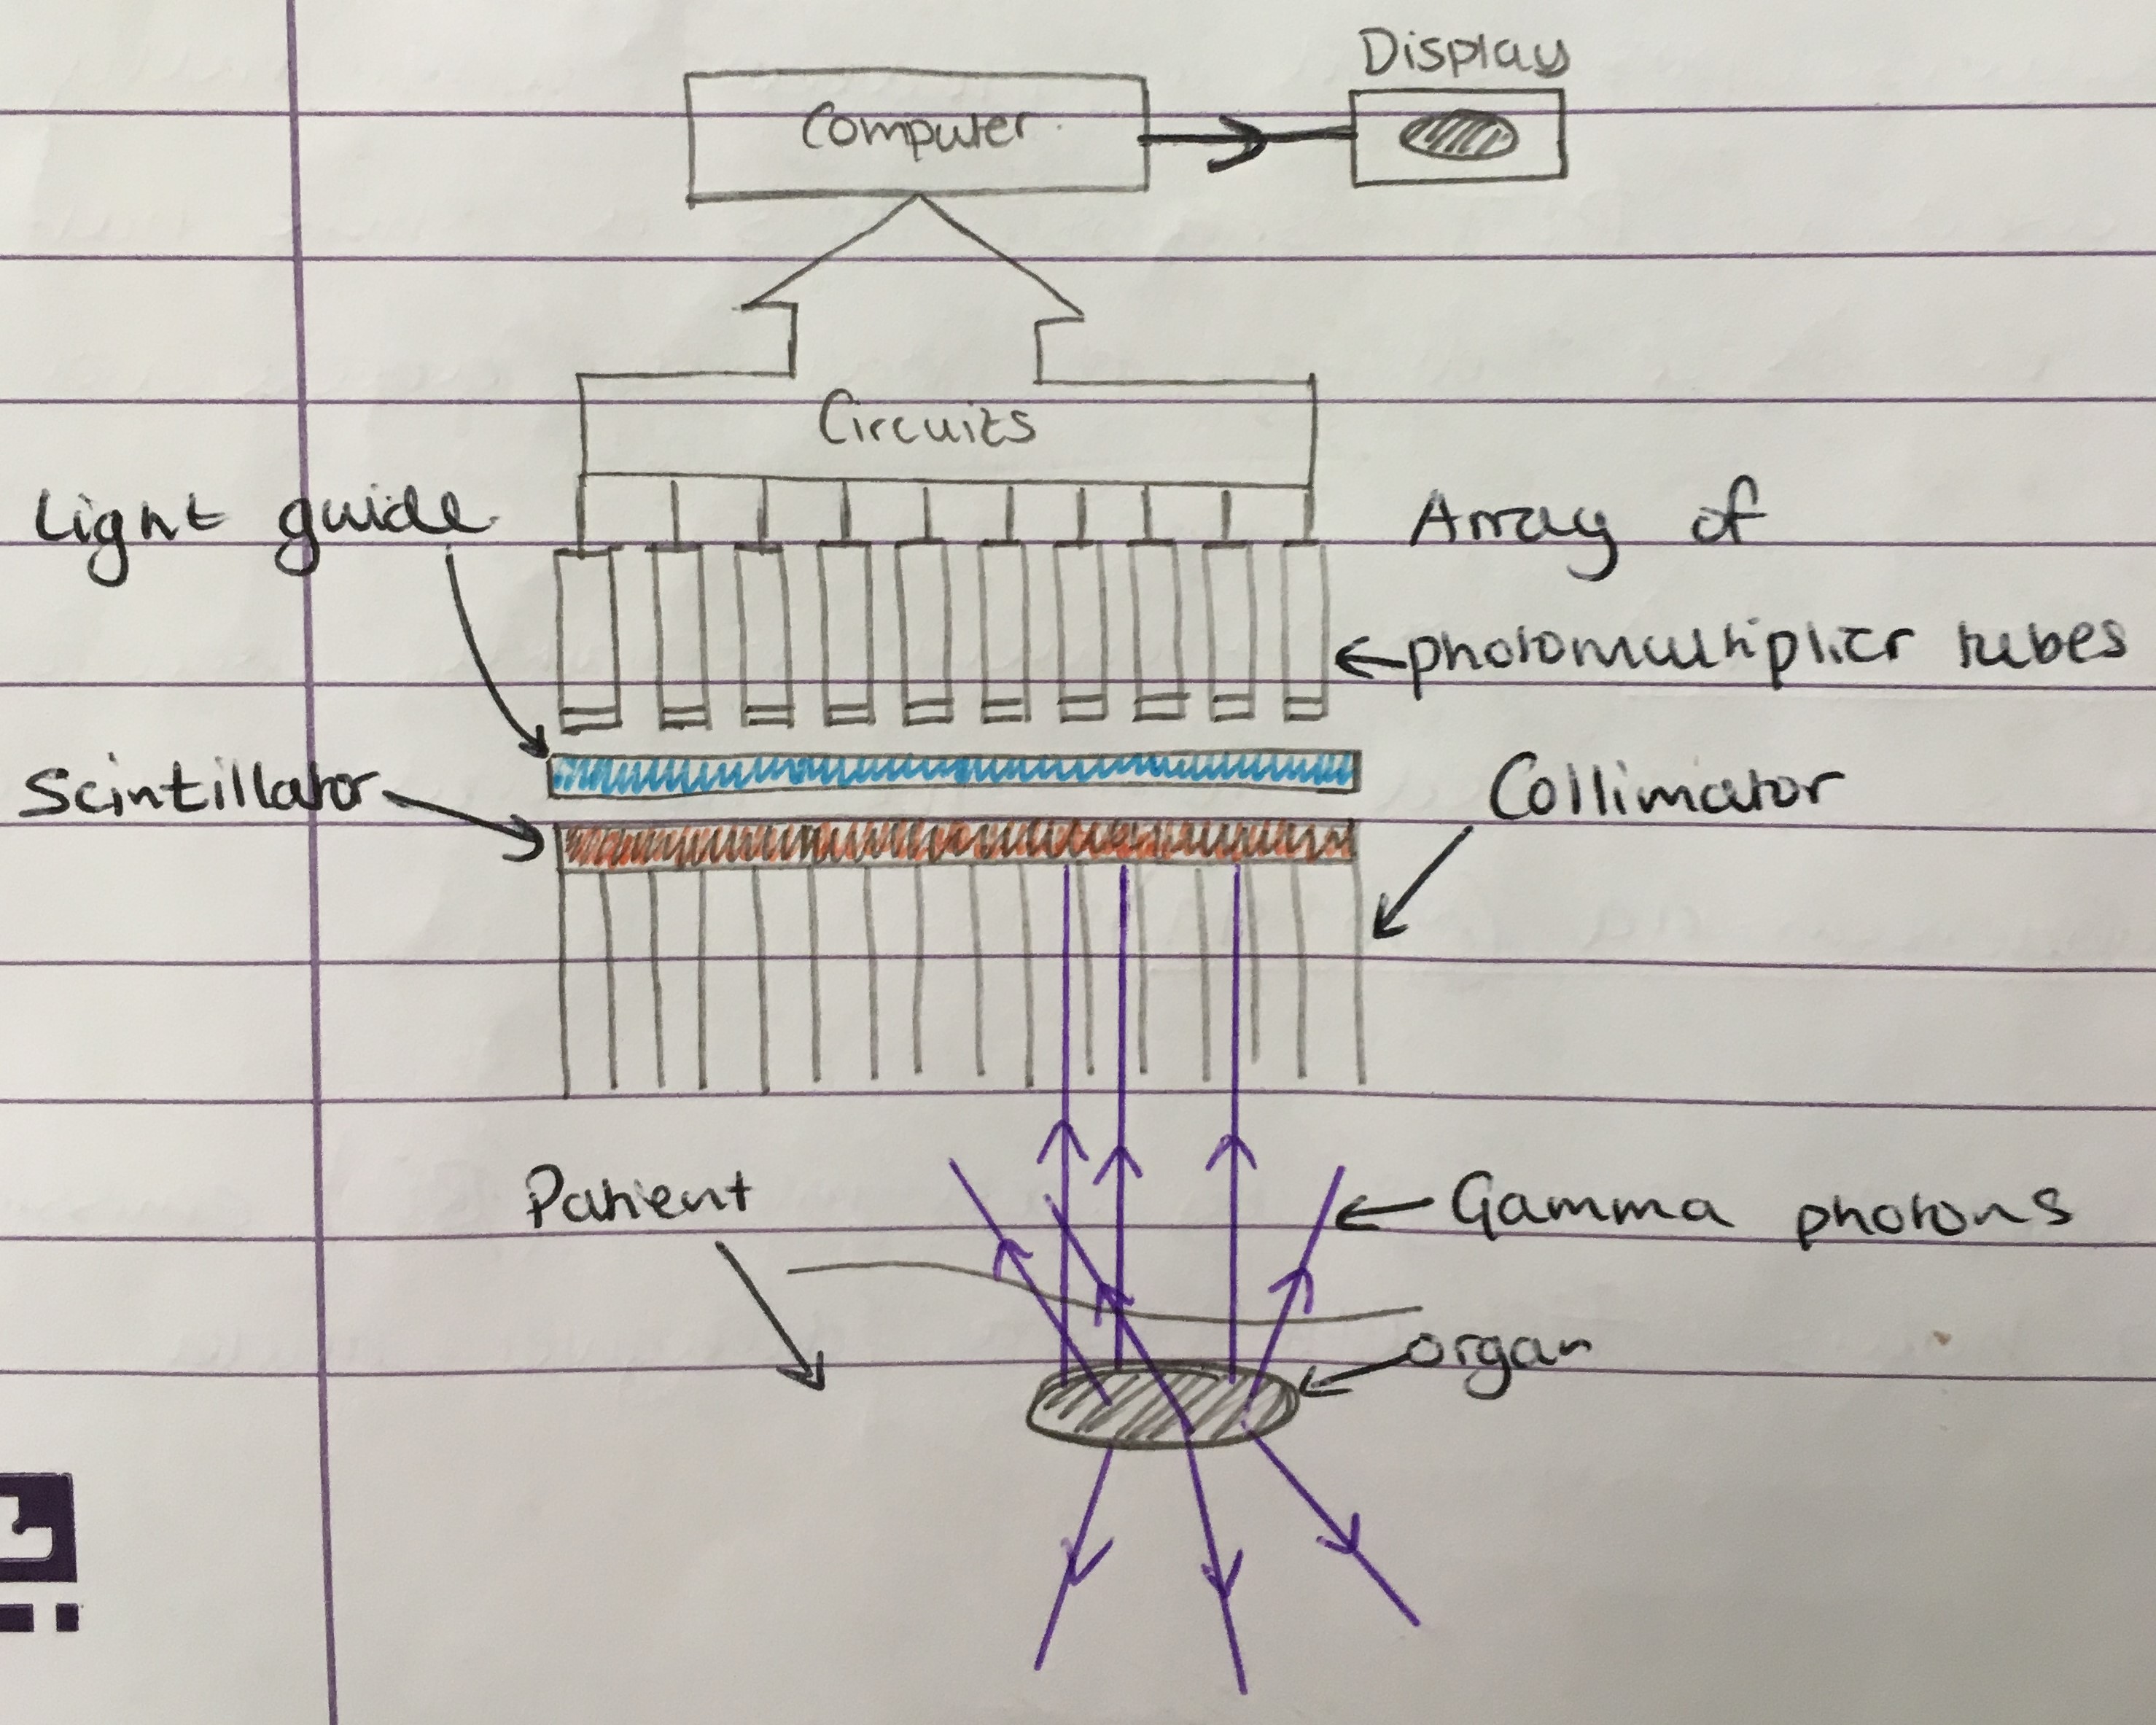 Display
Computer
Circuits
Light guide
Array of
photomultiplier tubes
Scintillator
Collimator
Patient
Gamma photons
organ